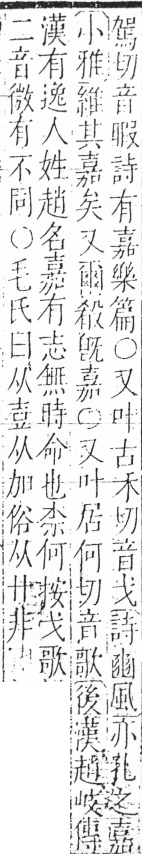 駕切音暇詩有嘉樂篇○又叶古禾切音戈詩豳風亦孔之嘉
小雅維其嘉矣又爾殽旣嘉○又叶居何切音歌後漢趙岐傳
漢有逸人姓趙名嘉有志無時命也柰何按戈歌
二音微有不同○毛氏曰从壴从加俗从廿非